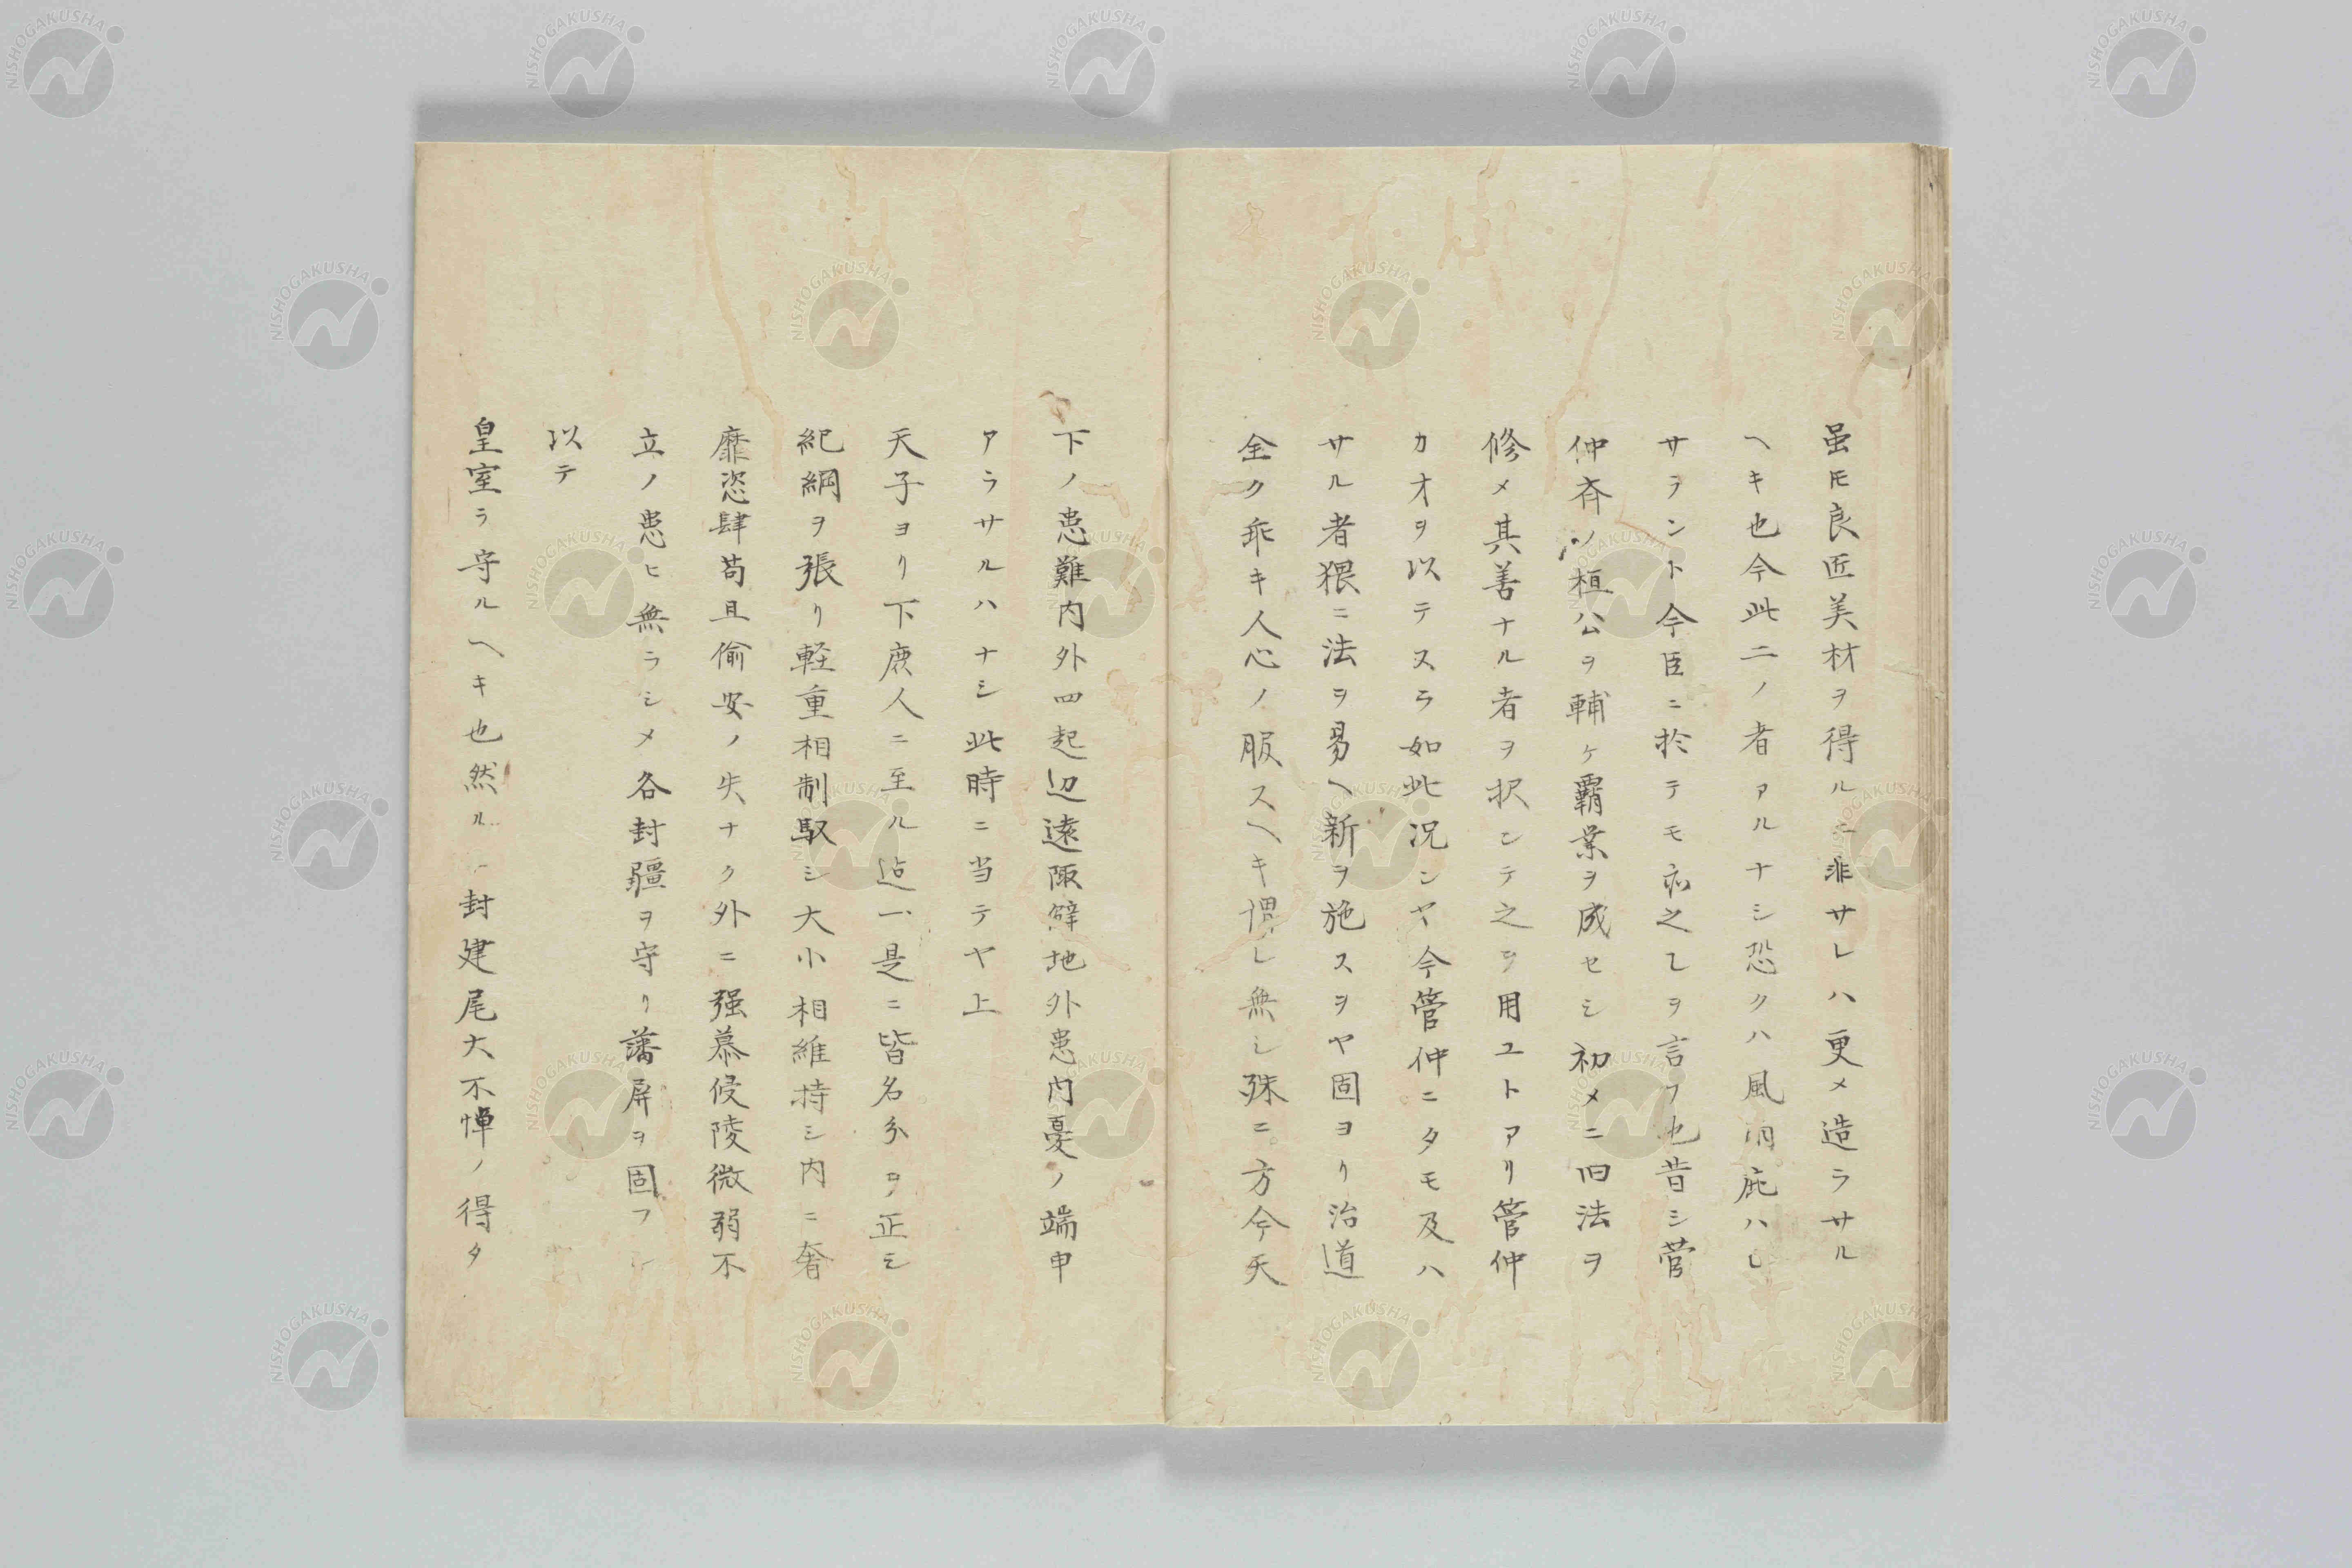 虽𪜈良匠美材ヲ得ルニ非サレハ更メ造ラサル
ヘキ也今此二ノ者アルナシ恐クハ風雨庇ハレ
サラント今臣ニ於テモ亦之レヲ言フ也昔シ菅
仲斉ノ桓公ヲ輔ケ覇業ヲ成セシ初メニ旧法ヲ
修メ其善ナル者ヲ択ンテ之ヲ用ユトアリ管仲
カオヲ以テスラ如此况ンヤ今管仲ニタモ及ハ
サル者猥ニ法ヲ易ヘ新ヲ施スヲヤ固ヨリ治道
全ク乖キ人心ノ服スヘキ謂レ無シ殊ニ方今天
下ノ患難内外四起辺遠陬僻地外患内憂ノ端申
アラサルハナシ此時ニ当テヤ上
天子ヨリ下庶人ニ至ル迠一是ニ皆名分ヲ正シ
紀綱ヲ張リ軽重相制馭シ大小相維持シ内ニ奢
靡恣肆苟且偷安ノ失ナク外ニ强暴侵陵微弱不
立ノ患ヒ無ラシメ各封疆ヲ守リ藩屏ヲ固フシ
以テ
皇室ラ守ルヘキ也然ル 封建尾大不惮ノ得タ